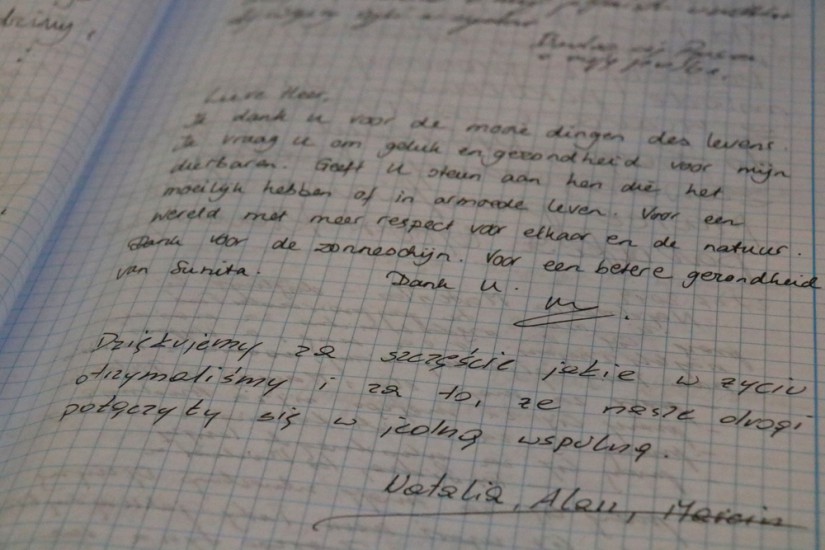 Lieve Heer,
Ik dank u voor de mooie dingen des levens.
Ik vraag u om geluk en gezondheid voor mijn
dierbaren. Geeft u steun aan hen die het
moeilijk hebben of in armoede leven. Voor een
wereld met meer respect voor elkaar en de natuur.
Dank voor de zonneschijn. Voor een betere gezondheid
van Sunita. Dank u.
Dziękujemy za szczęście jakie w życiu
otrzymaliśmy i za to, ze nasze drogi
połączyły się w jedną wspulną.
Natalia, Alan, Marcin